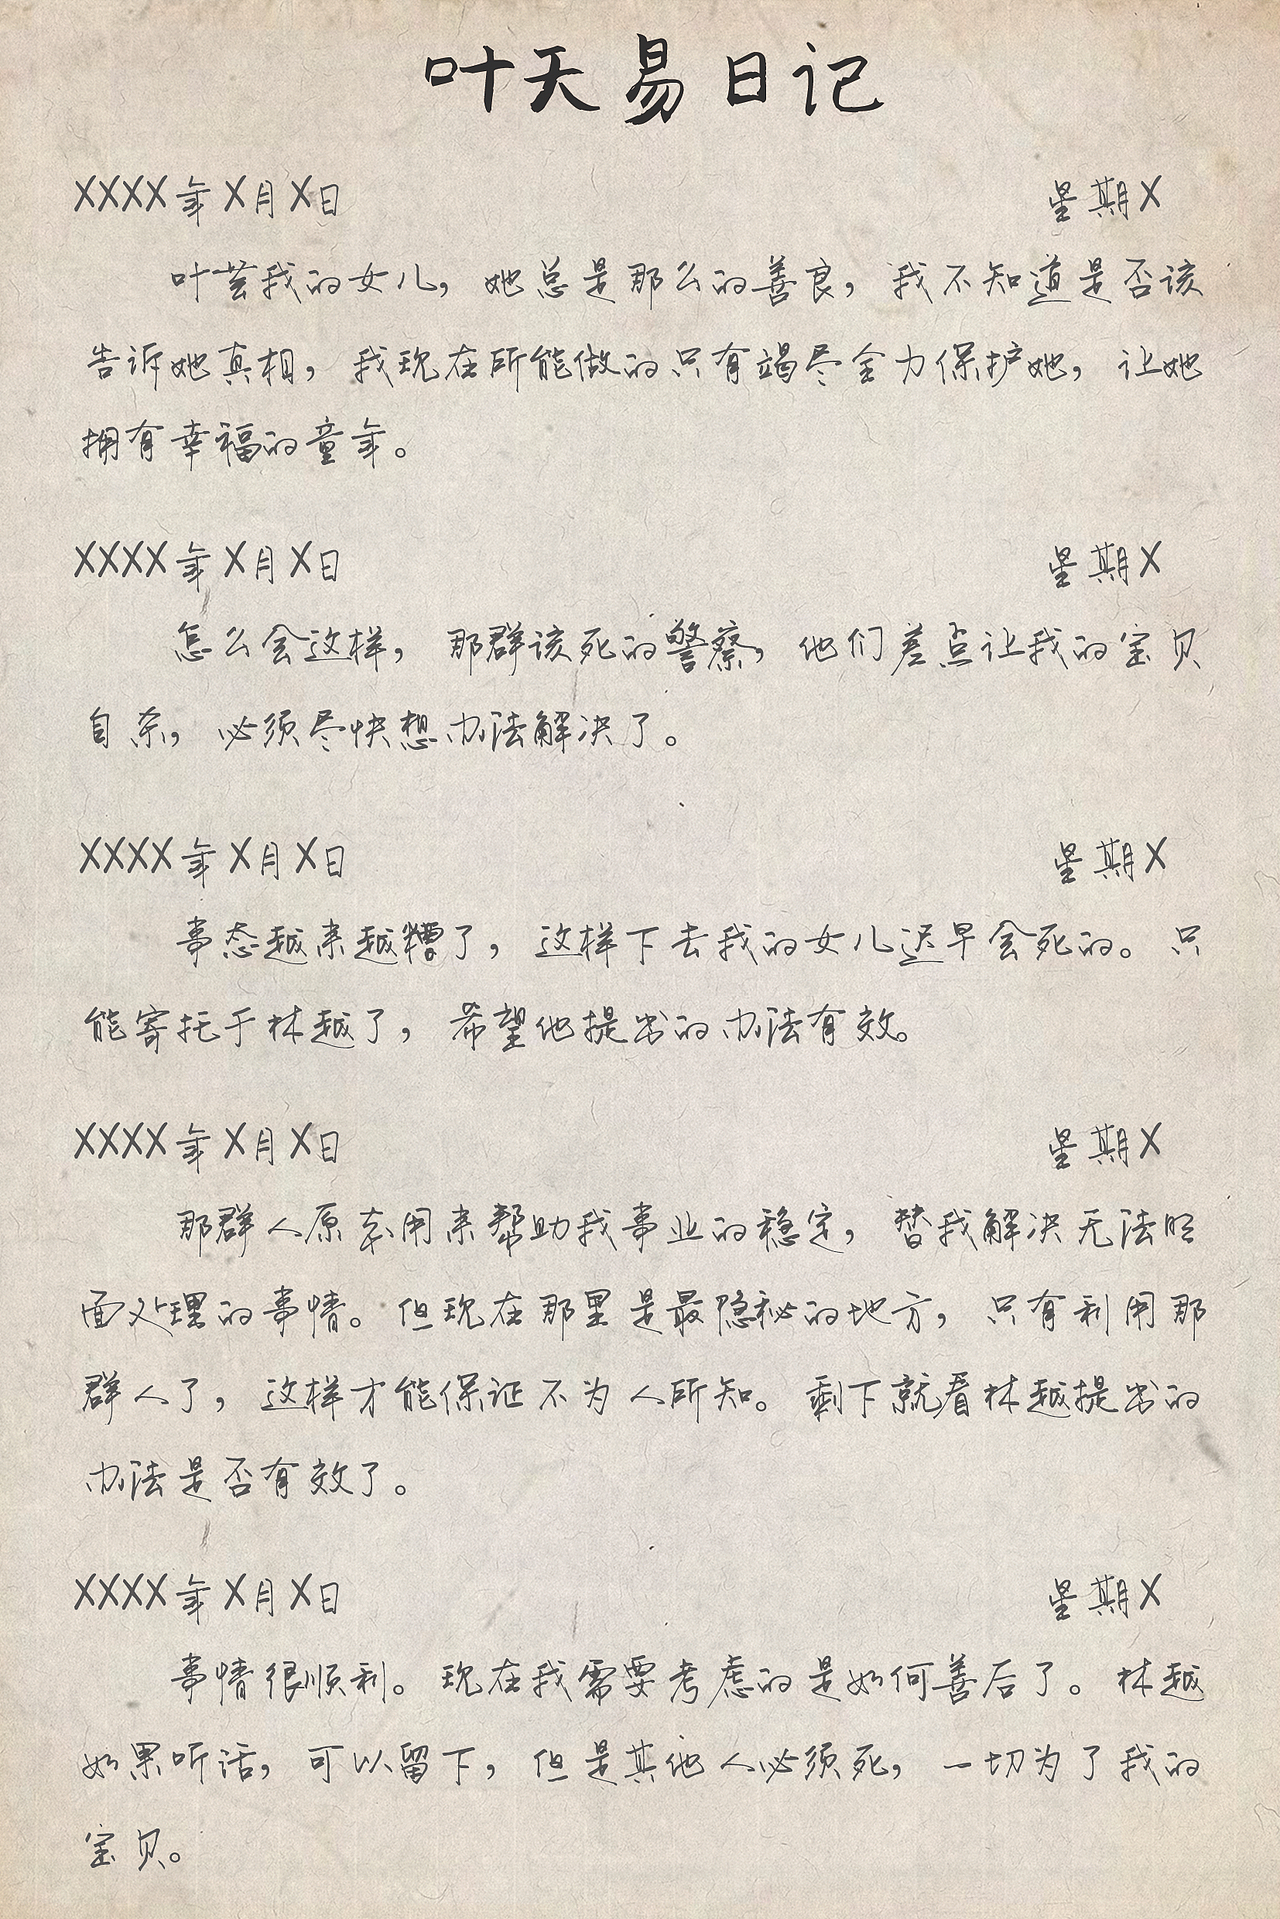 叶天易日记
XXXX年X月X日 星期X
叶芸我的女儿，她总是那么的善良，我不知道是否该
告诉她真相，我现在所能做的只有竭尽全力保护她，让她
拥有幸福的童年。
XXXX年X月X日 星期X
怎么会这样，那群该死的警察，他们差点让我的宝贝
自杀，必须尽快想办法解决了。
XXXX年X月X日 星期X
事态越来越糟了，这样下去我的女儿迟早会死的。只
能寄托于林越了，希望他提出的办法有效。
XXXX年X月X日 星期X
那群人原本用来帮助我事业的稳定，替我解决无法明
面处理的事情。但现在那里是最隐秘的地方，只有利用那
群人了，这样才能保证不为人所知。剩下就看林越提出的
办法是否有效了。
XXXX年X月X日 星期X
事情很顺利。现在我需要考虑的是如何善后了。林越
如果听话，可以留下，但是其他人必须死，一切为了我的
宝贝。